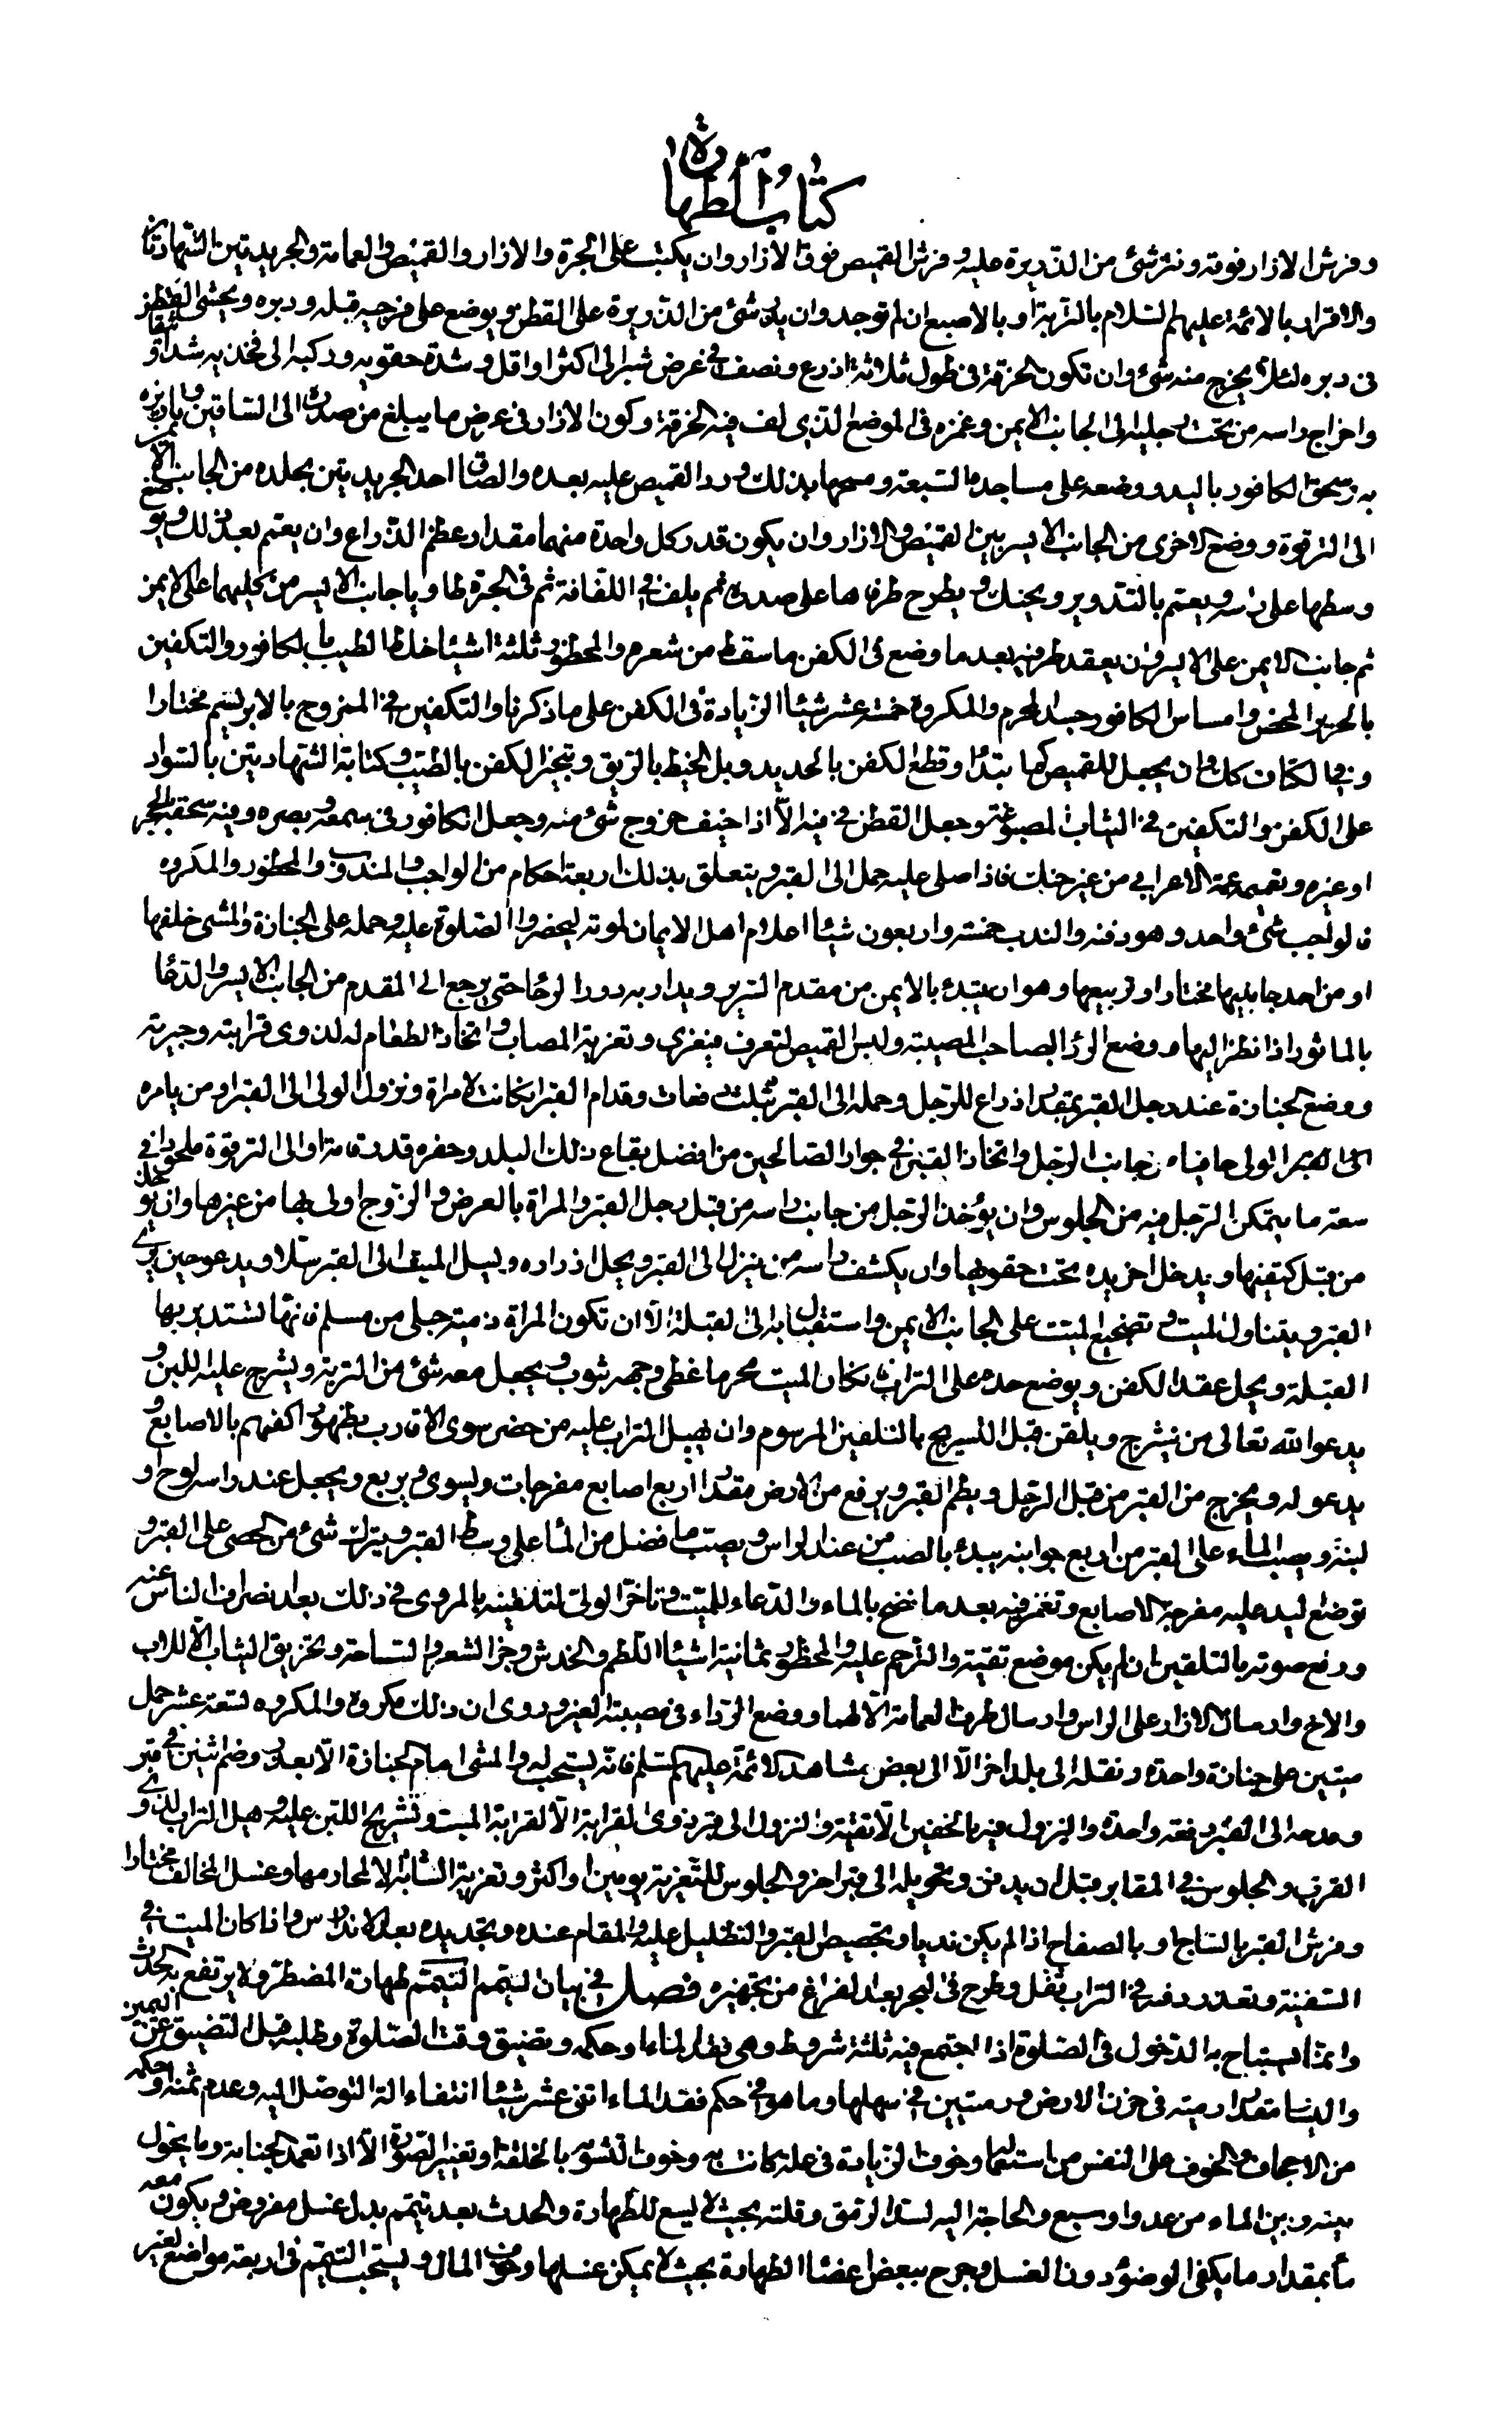 كتاب الطهارة
وفرش الازار فوقه ونثر شئ من الذريرة عليه وفرش القميص فوق الازار وان يكتب على الحبرة والازار والقميص والعمامة والجريدتين الشهادتان
والاقرار بالائمة عليهم السلام بالتربة او بالاصبع ان لم توجد وان يلقى شئ من الذريرة على القطن ويوضع على فرجيه قبله ودبره ويحشى القطن
فى دبره لئلا يخرج منه شئ وان تكون الخرقة فى طول ثلاثة اذرع ونصف فى عرض شبر الى اكثر او اقل وشدة حقويه وركبه الى فخذيه شدا وثيقا
واخراج راسه من تحت رجليه الى الجانب الايمن وغمزه فى الموضع الذى لف فيه الخرقة وكون الازار فى عرض ما يبلغ من صدره الى الساقين
به وسحق الكافور باليد ووضعه على مساجده السبعة ومسحها بذلك ورد القميص عليه بعده والصاق احد الجريدتين بجلده من الجانب الايمن
الى الترقوة ووضع الاخرى من الجانب الايسر بين القميص والازار وان يكون قدر كل واحدة منهما مقدار عظم الذراع وان يعتم بعد ذلك ويوضع
وسطها على راسه ويعتم بالتدوير ويحنك ويطرح طرفاها على صدره ثم يلف فى اللفافة ثم فى الحبرة طاويا جانب الايسر من كليهما على الايمن
ثم جانب الايمن على الايسر وان يعقد طرفيه بعد ما وضع فى الكفن ما سقط من شعره والمحظور ثلثة اشيئا خلط الطيب بالكافور والتكفين
بالحرير المحض وامساس الكافور جسد المحرم والمكروه خمسة عشر شيئا الزيادة فى الكفن على ما ذكرنا والتكفين فى الممزوج بالابريسم مختارا
وفى الكتان كله وان يجعل للقميص كما مبتدأ وقطع الكفن بالحديد وبل الخيط بالريق وتبخير الكفن بالطيب وكتابة الشهادتين بالسواد
على الكفن والتكفين فى الثياب المصبوغة وجعل القطن فى فيه الا اذا خيف خروج شئ منه وجعل الكافور فى سمعه وبصره وفيه وسحقه بالحجر
او غيره وتعميمه عمة الاعرابى من غير حنك فاذا صلى عليه حمل الى القبر ويتعلق بذلك اربعة احكام من الواجب والمندوب والمحظور والمكروه
فالواجب شئ واحد وهو دفنه والندب خمسة واربعون شيئا اعلام اهل الايمان لموته ليحضروا الصلوة عليه وحمله على الجنازة والمشى خلفها
او من احد جانبيها مختارا وتربيعها وهو ان يبتدء بالايمن من مقدم السرير ويدار به دور الرحا حتى يرجع الى المقدم من الجانب الايسر والدعا
بالماثور اذا نظر اليها ووضع الرداء لصاحب المصيبة ولبس القميص لتعرف فيعزى وتعزية المصاب واتخاذ الطعام له لذوى قرابته وجيرته
ووضع الجنازة عند رجل القبر بمقدار اذراع للرجل وحمله الى القبر بثلث دفعات وقدام القبر ان كانت لامراة ونزول الولى الى القبر او من يامره
الى القبر الولى حافيا من جانب الرجل واتخاذ القبر فى جوار الصالحين من افضل بقاع ذلك البلد وحفره قدر قامة او الى الترقوة ملحودا فى
سعة ما يتمكن الرجل فيه من الجلوس وان يؤخذ الرجل من جانب راسه من قبل رجل القبر والمراة بالعرض والزوج اولى بها من غيرها وان يؤخذ
من قبل كتفيها ويدخل اخر يده تحت حقويها وان يكشف راسه من ينزل الى القبر ويحل ازراره ويسل الميت الى القبر سلا ويدعو حين يرى
القبر ويتناول الميت وتضجيع الميت على الجانب الايمن واستقبال به الى القبلة الا ان تكون المراة ذمية حبلى من مسلم فانها تستدبر بها
القبلة ويحل عقد الكفن ويوضع خده على التراب وان كان الميت محرما غطى وجهه بثوب ويجعل معه شئ من التربة ويشرج عليه اللبن و
يدعو الله تعالى من يشرج ويلقن قبل التشريج بالتلقين المرسوم وان يهيل التراب عليه من حضر سوى الاقارب بظهور اكفهم بالاصابع و
يدعو له ويخرج من القبر من قبل الرجل ويطم القبر ويرفع من الارض مقدار اربع اصابع مفرجات ويسوى ويربع ويجعل عند راسه لوح او
لبنة ويصب الماء على القبر من اربع جوانبه يبدء بالصب من عند الراس ويصب ما فضل من الماء على وسط القبر ويترك شئ من الحصى على القبر و
توضع اليد عليه مفرجة الاصابع وتغمز فيه بعد ما نضح بالماء والدعاء للميت وتاخر الولى لتلقينه بالمروى فى ذلك بعد انصراف الناس عنه
ورفع صوته بالتلقين ان لم يكن موضع تقية والترحم عليه والمحظور ثمانية اشيئا اللطم والخدش وجز الشعر والنياحة وتخريق الثياب الا للاب
والاخ وارسال الازار على الراس وارسال طرف العمامة الا لهما ووضع الرداء فى مصيبة الغير وروى ان ذلك مكروه والمكروه تسعة عشر حمل
ميتين على جنازة واحدة ونقله الى بلد اخر الا الى بعض مشاهد الائمة عليهم السلم فانه يستحب له والمشى امام الجنازة الا بعذر وضم اثنين فى قبر
وحده الى القبر دفعة واحدة والنزول فيه بالخفين الا تقية والنزول الى قبر ذوى القرابة الا لقرابة الميت وتشريج اللبن عليه وهيل التراب لذوى
القربى والجلوس فى المقابر قبل ان يدفن وتحويله الى قبر اخر والجلوس للتعزية يومين او اكثر وتعزية الشابة الا لمحارمها وغسل المخالف مختارا
وفرش القبر بالساج او بالصفاح اذا لم يكن نديا وتجصيص القبر والتظليل عليه والمقام عنده وتجديده بعد الاندراس واذا كان الميت فى
السفينة وتعذر دفنه فى التراب ثقل وطرح فى البحر بعد الفراغ من تجهيزه فصل فى بيان التيمم التيمم طهارة المضطر ولا يرتفع به الحدث
وانما يستباح به الدخول فى الصلوة اذا اجتمع فيه ثلثة شروط وهى فقد الماء او حكمه وتضيق وقت الصلوة وطلبه قبل التضيق عن اليمين
واليسار مقدار رمية فى حزن الارض ورميتين فى سهلها وما هو فى حكم فقد الماء اثنى عشر شيئا انتفاء الة التوصل اليه وعدم ثمنه وحكمه
من الاجحاف والخوف على النفس من استعماله وخوف الزيادة فى علة كانت به وخوف التشويه بالخلقة وتغيير الصورة الا اذا تعمد الجنابة وما يحول
بينه وبين الماء من عدو او سبع والحاجة اليه لسد الرمق وقلته بحيث لا يسع للطهارة والحدث بعد تيمم بدل غسل مفروض ويكون معه
ماء بمقدار ما يكفى الوضوء دون الغسل وجرح ببعض اعضاء الطهارة بحيث لا يمكن غسلها وخوف المال ويستحب التيمم فى اربعة مواضع لغير